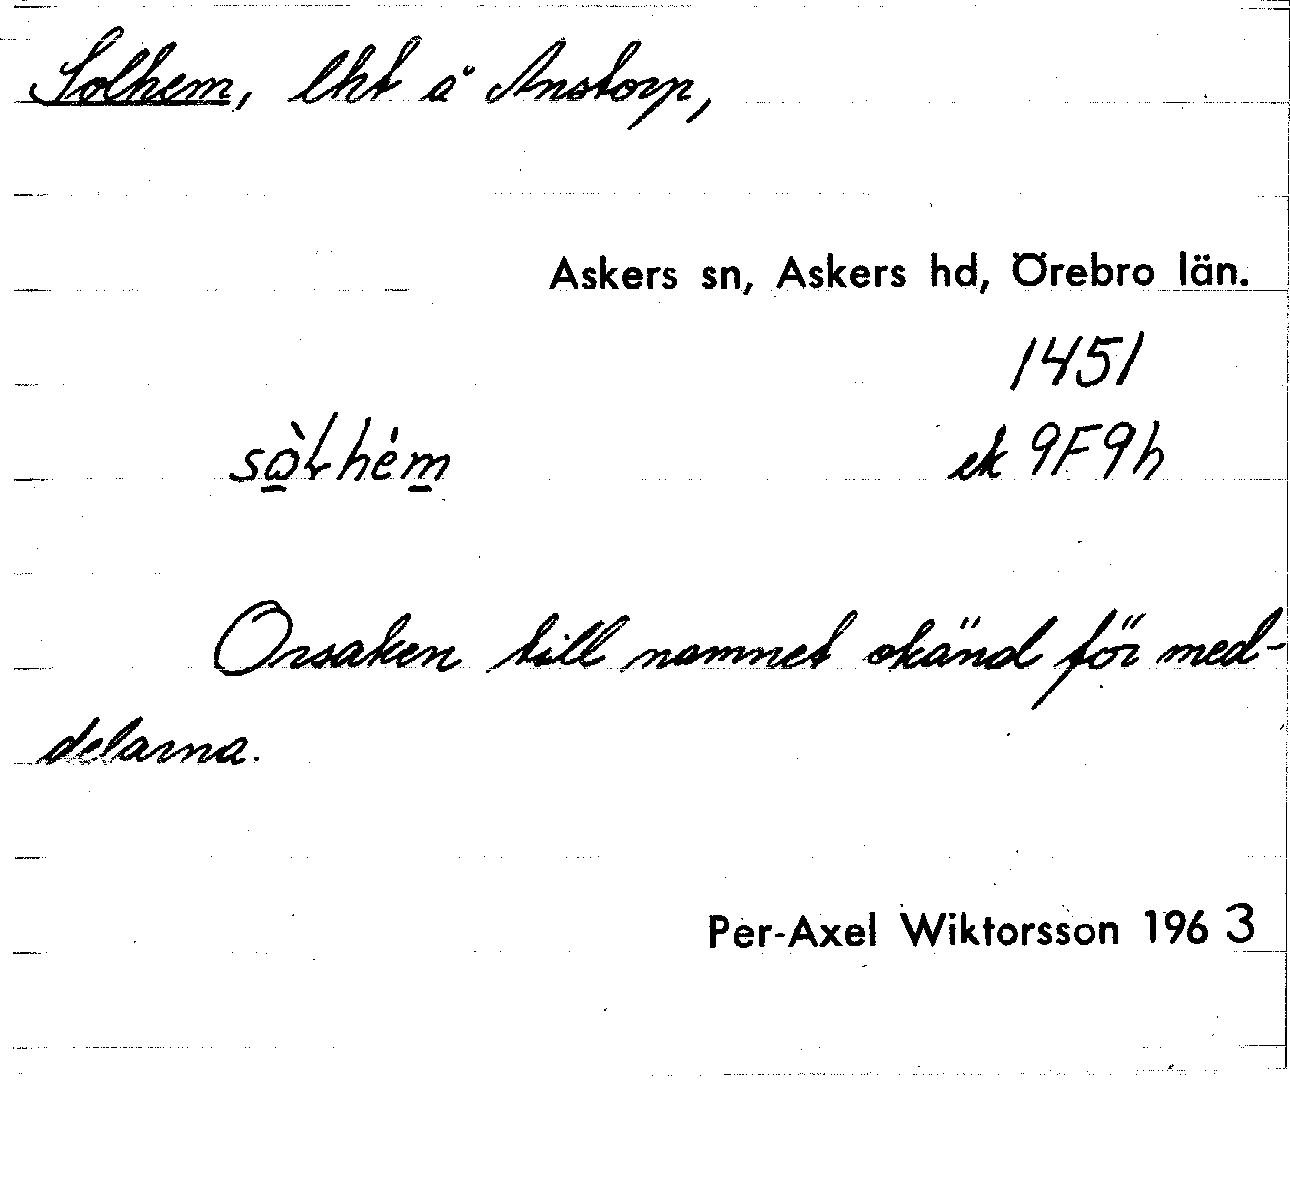 Solhem, lht å Anstorp,
Askers sn, Askers hd, Örebro län.
1451
sò̱lhém̱ ek 9F9h
Orsaken till namnet okänd för med-
delarna.
Per-Axel Wiktorsson 1963